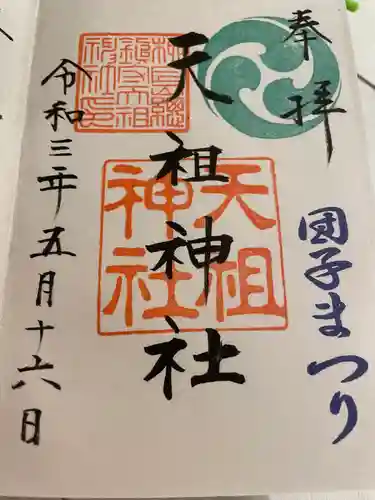 奉拝
団子まつり
天祖神社
天祖神社
令和三年五月十六日